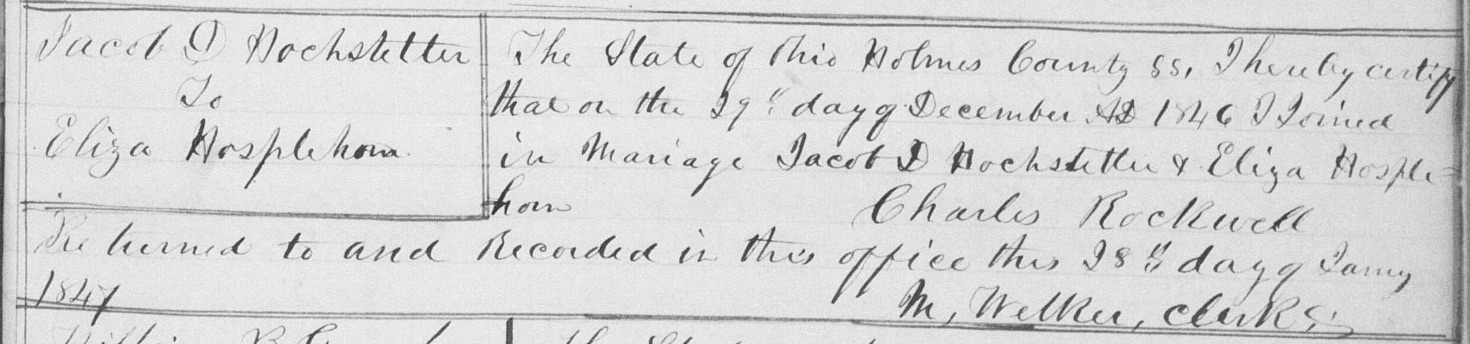 Jacob D Hochstetter
To
Eliza Hosplehorn
The State of Ohio Holmes County SS, I hereby certify
that on the 29th day of December AD 1846 I Joined
in Mariage Jacob D Hochstetter & Eliza Hosple=
horn
Charles Rockwell
Returned to and Recorded in this office this 28th day of Jany
1847
M, Welker, Clerk